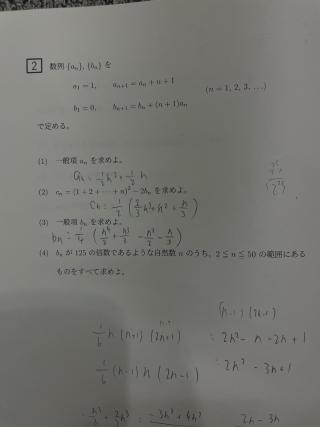 2 数列 {aₙ}, {bₙ} を
a₁ = 1, aₙ₊₁ = aₙ + n + 1
(n = 1, 2, 3, …)
b₁ = 0, bₙ₊₁ = bₙ + (n + 1)aₙ
で定める。
(1) 一般項 aₙ を求めよ。
aₙ = 1/2 n² + 1/2 n
(2) cₙ = (1 + 2 + ⋯ + n)² − 2bₙ を求めよ。
cₙ = 1/2 (2/3 n³ + n² + n/3)
(3) 一般項 bₙ を求めよ。
bₙ = 1/4 (n⁴/2 + n³/3 − n²/2 − n/3)
(4) bₙ が 125 の倍数であるような自然数 n のうち, 2 ≦ n ≦ 50 の範囲にある
ものをすべて求めよ。
(n-1) (2n-1)
1/6 n (n+1) (2n+1) = 2n² - n - 2n + 1
1/6 (n-1) n (2n-1) = 2n² - 3n + 1
2n - 3n